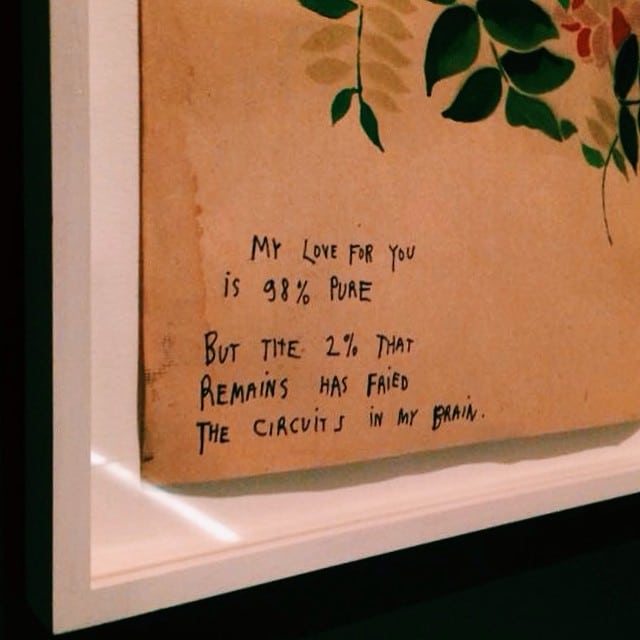 MY LOVE FOR YOU
is 98% PURE
BUT THE 2% THAT
REMAiNS HAS FRiED
THE CiRCUiTS iN MY BRAiN.